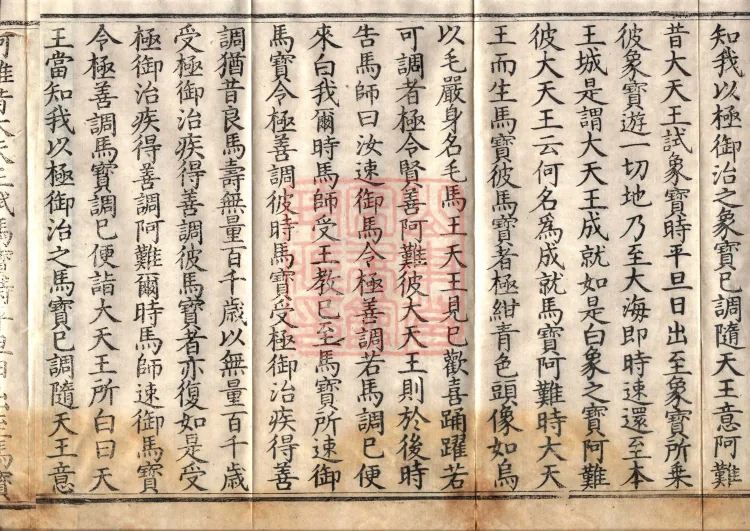 知我以極御治之象寶已調隨天王意阿難
昔大天王試象寶時平旦日出至象寶所乗
彼象寶遊一切地乃至大海即時速還至本
王城是謂大天王成就如是白象之寶阿難
彼大天王云何名爲成就馬寶阿難時大天
王而生馬寶彼馬寶者極紺青色頭像如烏
以毛嚴身名毛馬王天王見已歡喜踊躍若
可調者極令賢善阿難彼大天王則於後時
告馬師曰汝速御馬令極善調若馬調已便
來白我爾時馬師受王教已至馬寶所速御
馬寶令極善調彼時馬寶受極御治疾得善
調猶昔良馬壽無量百千歲以無量百千歲
受極御治疾得善調彼馬寶者亦復如是受
極御治疾得善調阿難爾時馬師速御馬寶
令極善調馬寶調已便詣大天王所白曰天
王當知我以極御治之馬寶已調隨天王意
阿難昔大天王試馬寶時平旦日出至馬寶